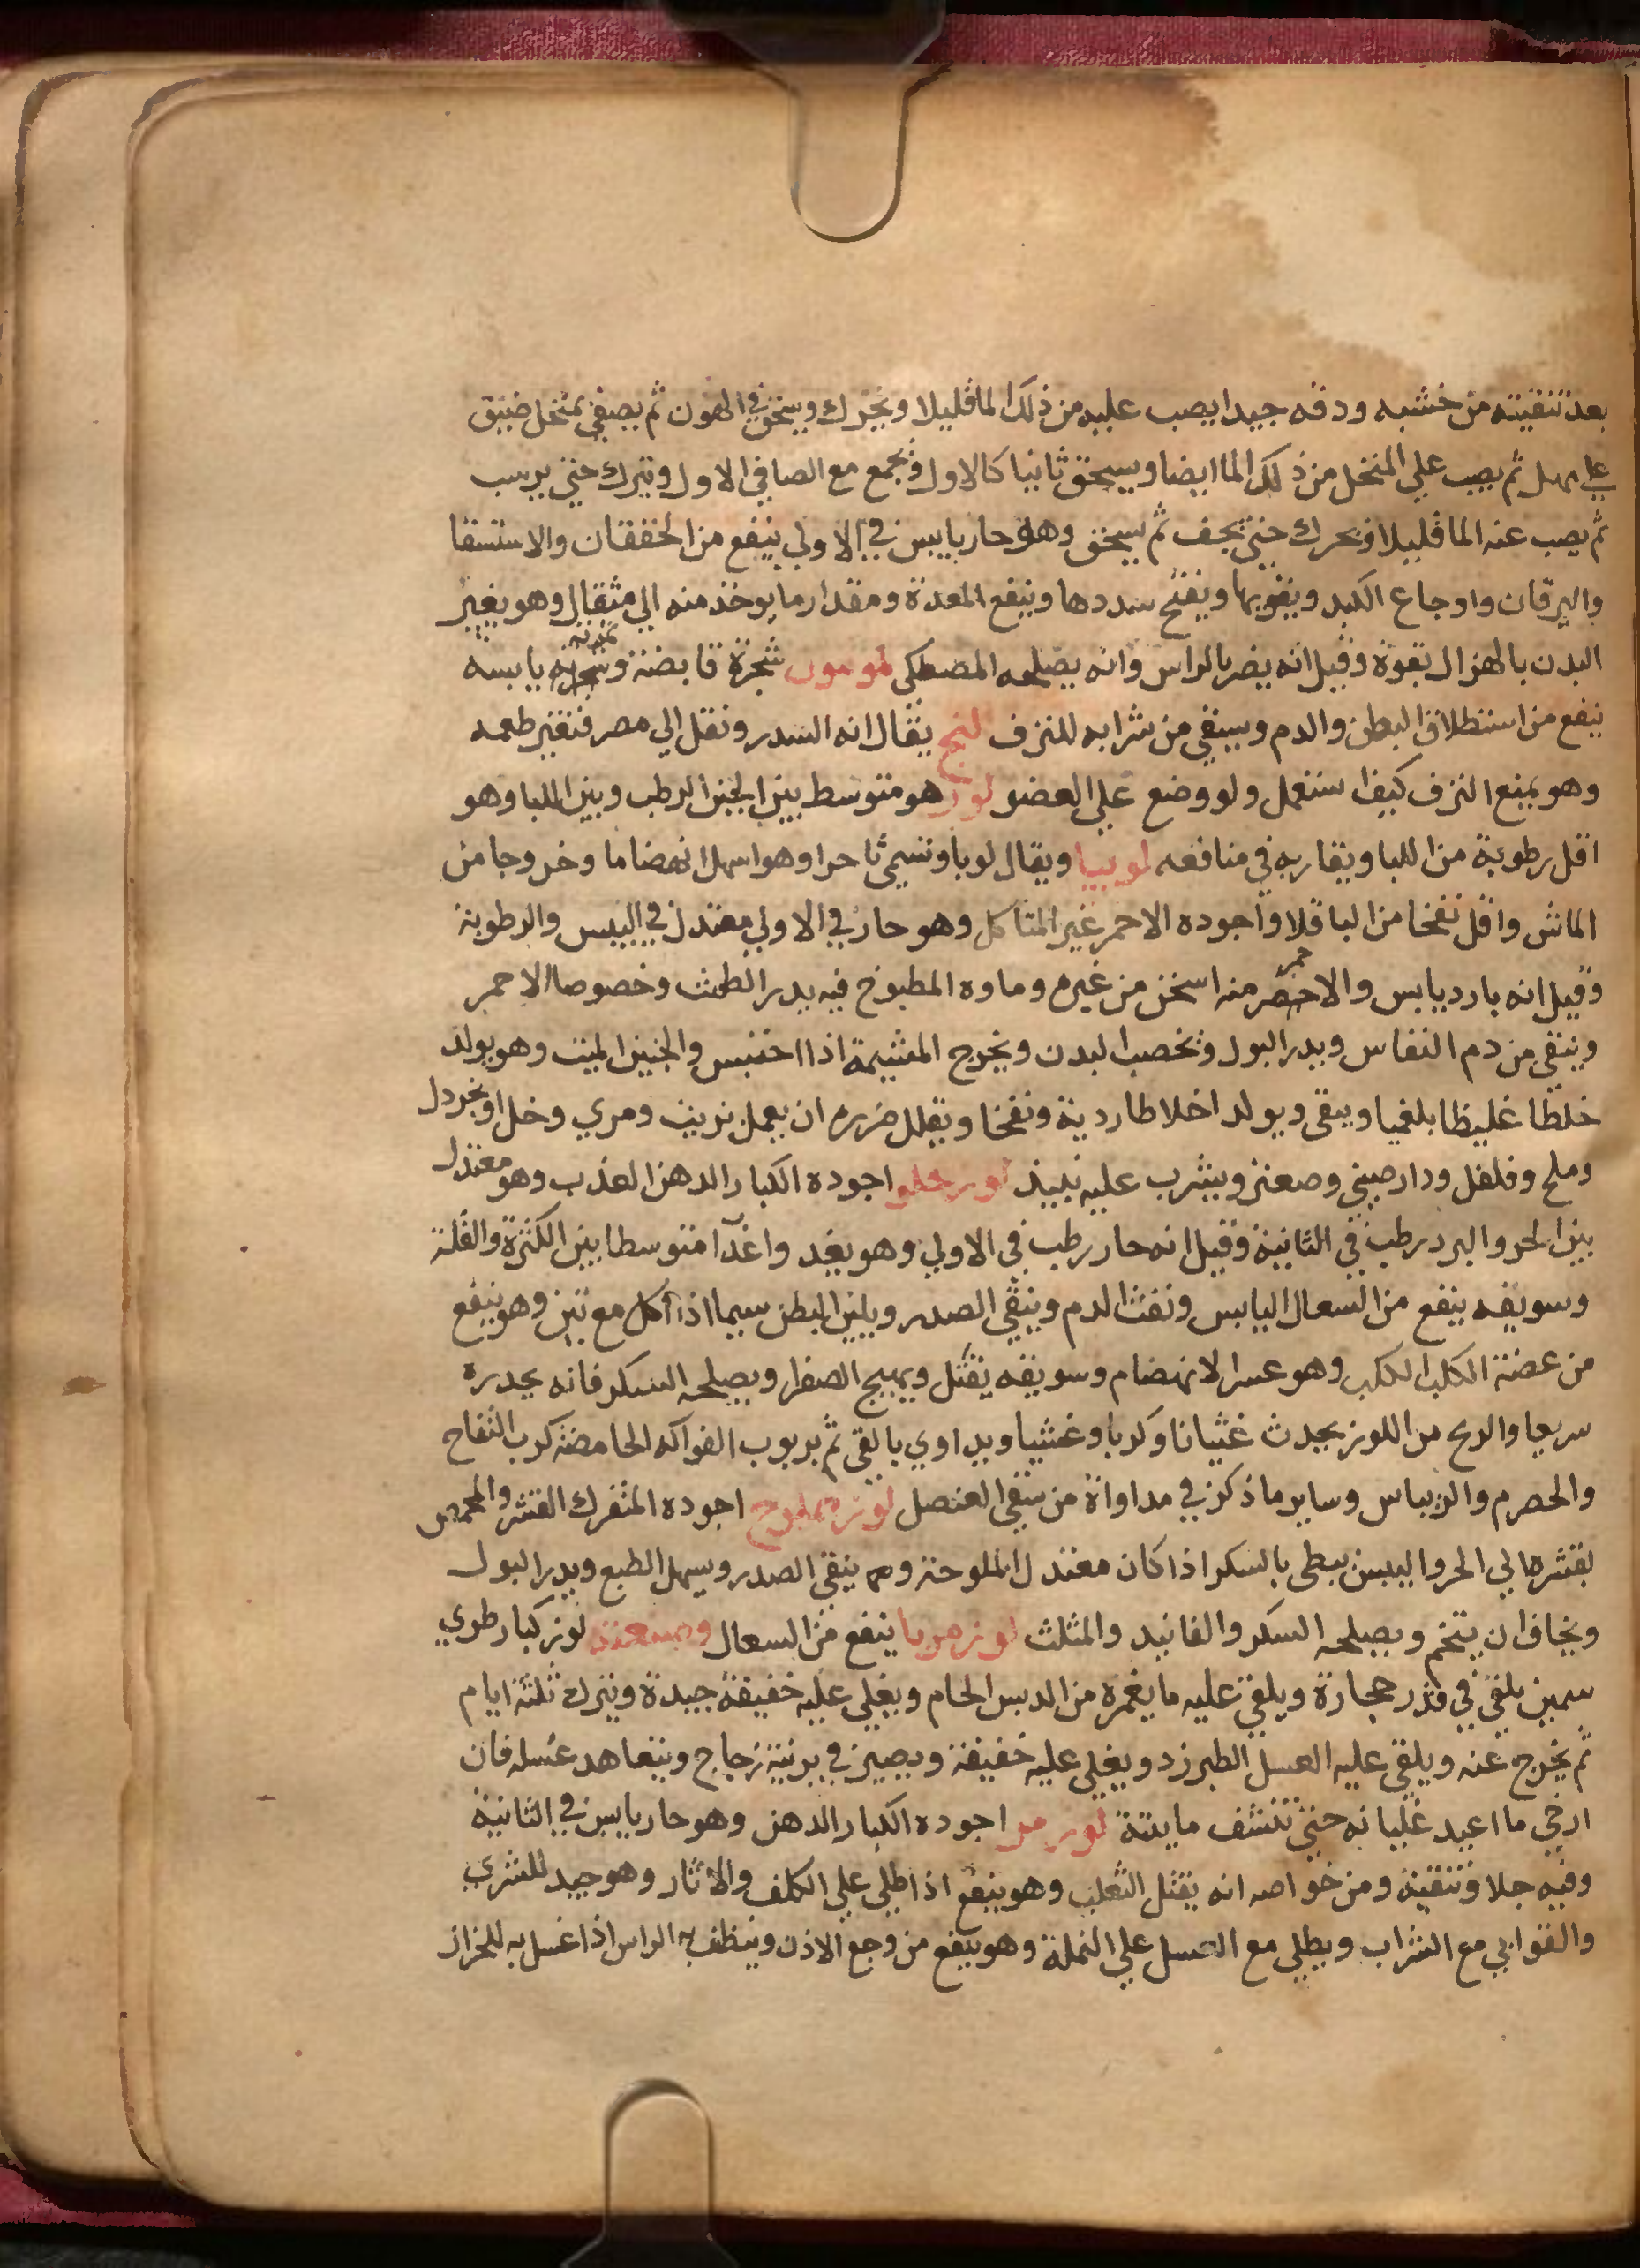 بعد تنقيته من خشبه ودقه جيدا يصب عليه من ذلك الما قليلا ويحرك ويسحق في الهون ثم يصفي بمنخل ضيق
علي مهل ثم يصب علي المنخل من ذلك الما ايضا ويسحق ثانيا كالاول ويجمع مع الصافي الاول ويترك حتي يرسب
ثم يصب عنه الما قليلا ويحرك حتي يجف ثم يسحق وهو حار يابس في الاولي ينفع من الخفقان والاستسقا
واليرقان واوجاع الكبد ويقويها ويفتح سددها وينفع المعدة ومقدار ما يوخذ منه الي مثقال وهو يغير
البدن بالهزال بقوة وقيل انه يضر بالراس وانه يصلحه المصطكي شجرة قابضة يابسة
ينفع من استطلاق البطن والدم ويسقي من شرابه للنزف لبخ يقال انه السدر ونقل الي مصر فتغير طعمه
وهو يمنع النزف كيف استعمل ولو وضع علي العضو لور هو متوسط بين الجبن الرطب وبين اللبا وهو
اقل رطوبة من اللبا ويقاربه في منافعه لوبيا ويقال لوبا وتسمي ثاحرا وهو اسهل انهضاما وخروجا من
الماش واقل نفخا من الباقلا واجوده الاحمر غير المتاكل وهو حار في الاولي معتدل في اليبس والرطوبة
وقيل انه بارد يابس والاحمر منه اسخن من غيره وماوه المطبوخ فيه يدر الطمث وخصوصا الاحمر
وينقي من دم النفاس ويدر البول ويخصب البدن ويخرج المشيمة اذا احتبس والجنين الميت وهو يولد
خلطا غليظا بلغميا ويبقي ويولد اخلاطا ردية ونفخا ويقلل ضرره ان يعمل بزيت ومري وخل او بخردل
وملح وفلفل ودارصيني وصعتر ويشرب عليه نبيذ لوز حلو اجوده الكبار الدهن العذب وهو معتدل
بين الحر والبرد رطب في الثانية وقيل انه حار رطب في الاولي وهو يغذ واغذا متوسطا بين الكثرة والقلة
وسويقه ينفع من السعال اليابس ونفث الدم وينقي الصدر ويلين البطن سيما اذا اكل مع تين وهو ينفع
من عضة الكلب الكلب وهو عسر الانهضام وسويقه يثقل ويهيج الصفرا ويصلحه السكر فانه يحدره
سريعا والريح من اللوز يحدث غثيانا وكربا وغشيا ويداوي بالقي ثم بربوب الفواكه الحامضة كرب التفاح
والحصرم والريباس وساير ما ذكر في مداواة من سقي العنصل لوز مملوح اجوده المتفرك القشر والمحمص
بقشره الي الحر واليبس يبطي بالسكر اذا كان معتدل الملوحة وهو ينقي الصدر ويسهل الطبع ويدر البول
ويخاف ان يتخم ويصلحه السكر والفانيد والمثلث لوز مربا ينفع من السعال وصنعته لوز كبار طري
سمين يلقي في قدر حجارة ويلقي عليه ما يغمره من الدبس الخام ويغلي عليه خفيفة جيدة ويترك ثلثة ايام
ثم يخرج عنه ويلقي عليه العسل الطبرزد ويغلي عليه خفيفة ويصير في برنية زجاج ويتعاهد عسله فان
ارخي ما اعيد غليانه حتي تنشف مايتة لوز مر اجوده الكبار الدهن وهو حار يابس في الثانية
وفيه جلا وتنقية ومن خواصه انه يقتل الثعلب وهو ينفع اذا طلي علي الكلف والاثار وهو جيد للشري
والقوابي مع الشراب ويطلي مع العسل علي النملة وهو ينفع من وجع الاذن وينظف به الراس اذا غسل به للحزاز